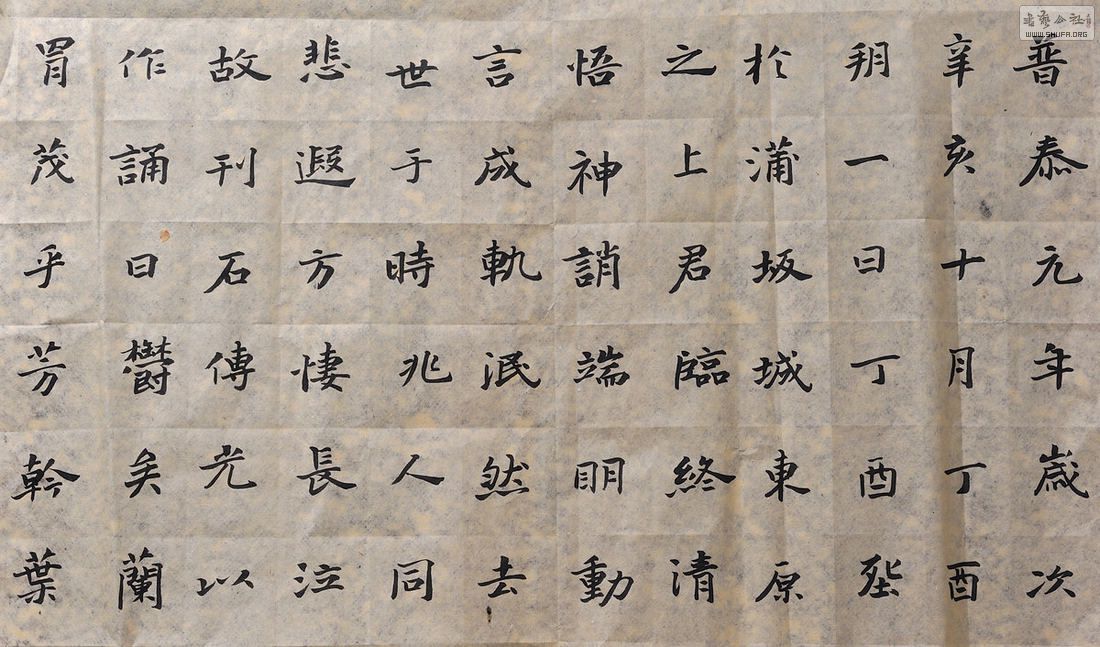 普泰元年歲次
辛亥十月丁酉
朔一日丁酉塟
於蒲坂城東原
之上君臨終清
悟神誚端明動
言成軌泯然去
世于時兆人同
悲遐方悽長泣
故刊石傳光以
作誦曰鬱矣蘭
冑茂乎芳幹葉
書藝公社
WWW.SHUFA.ORG